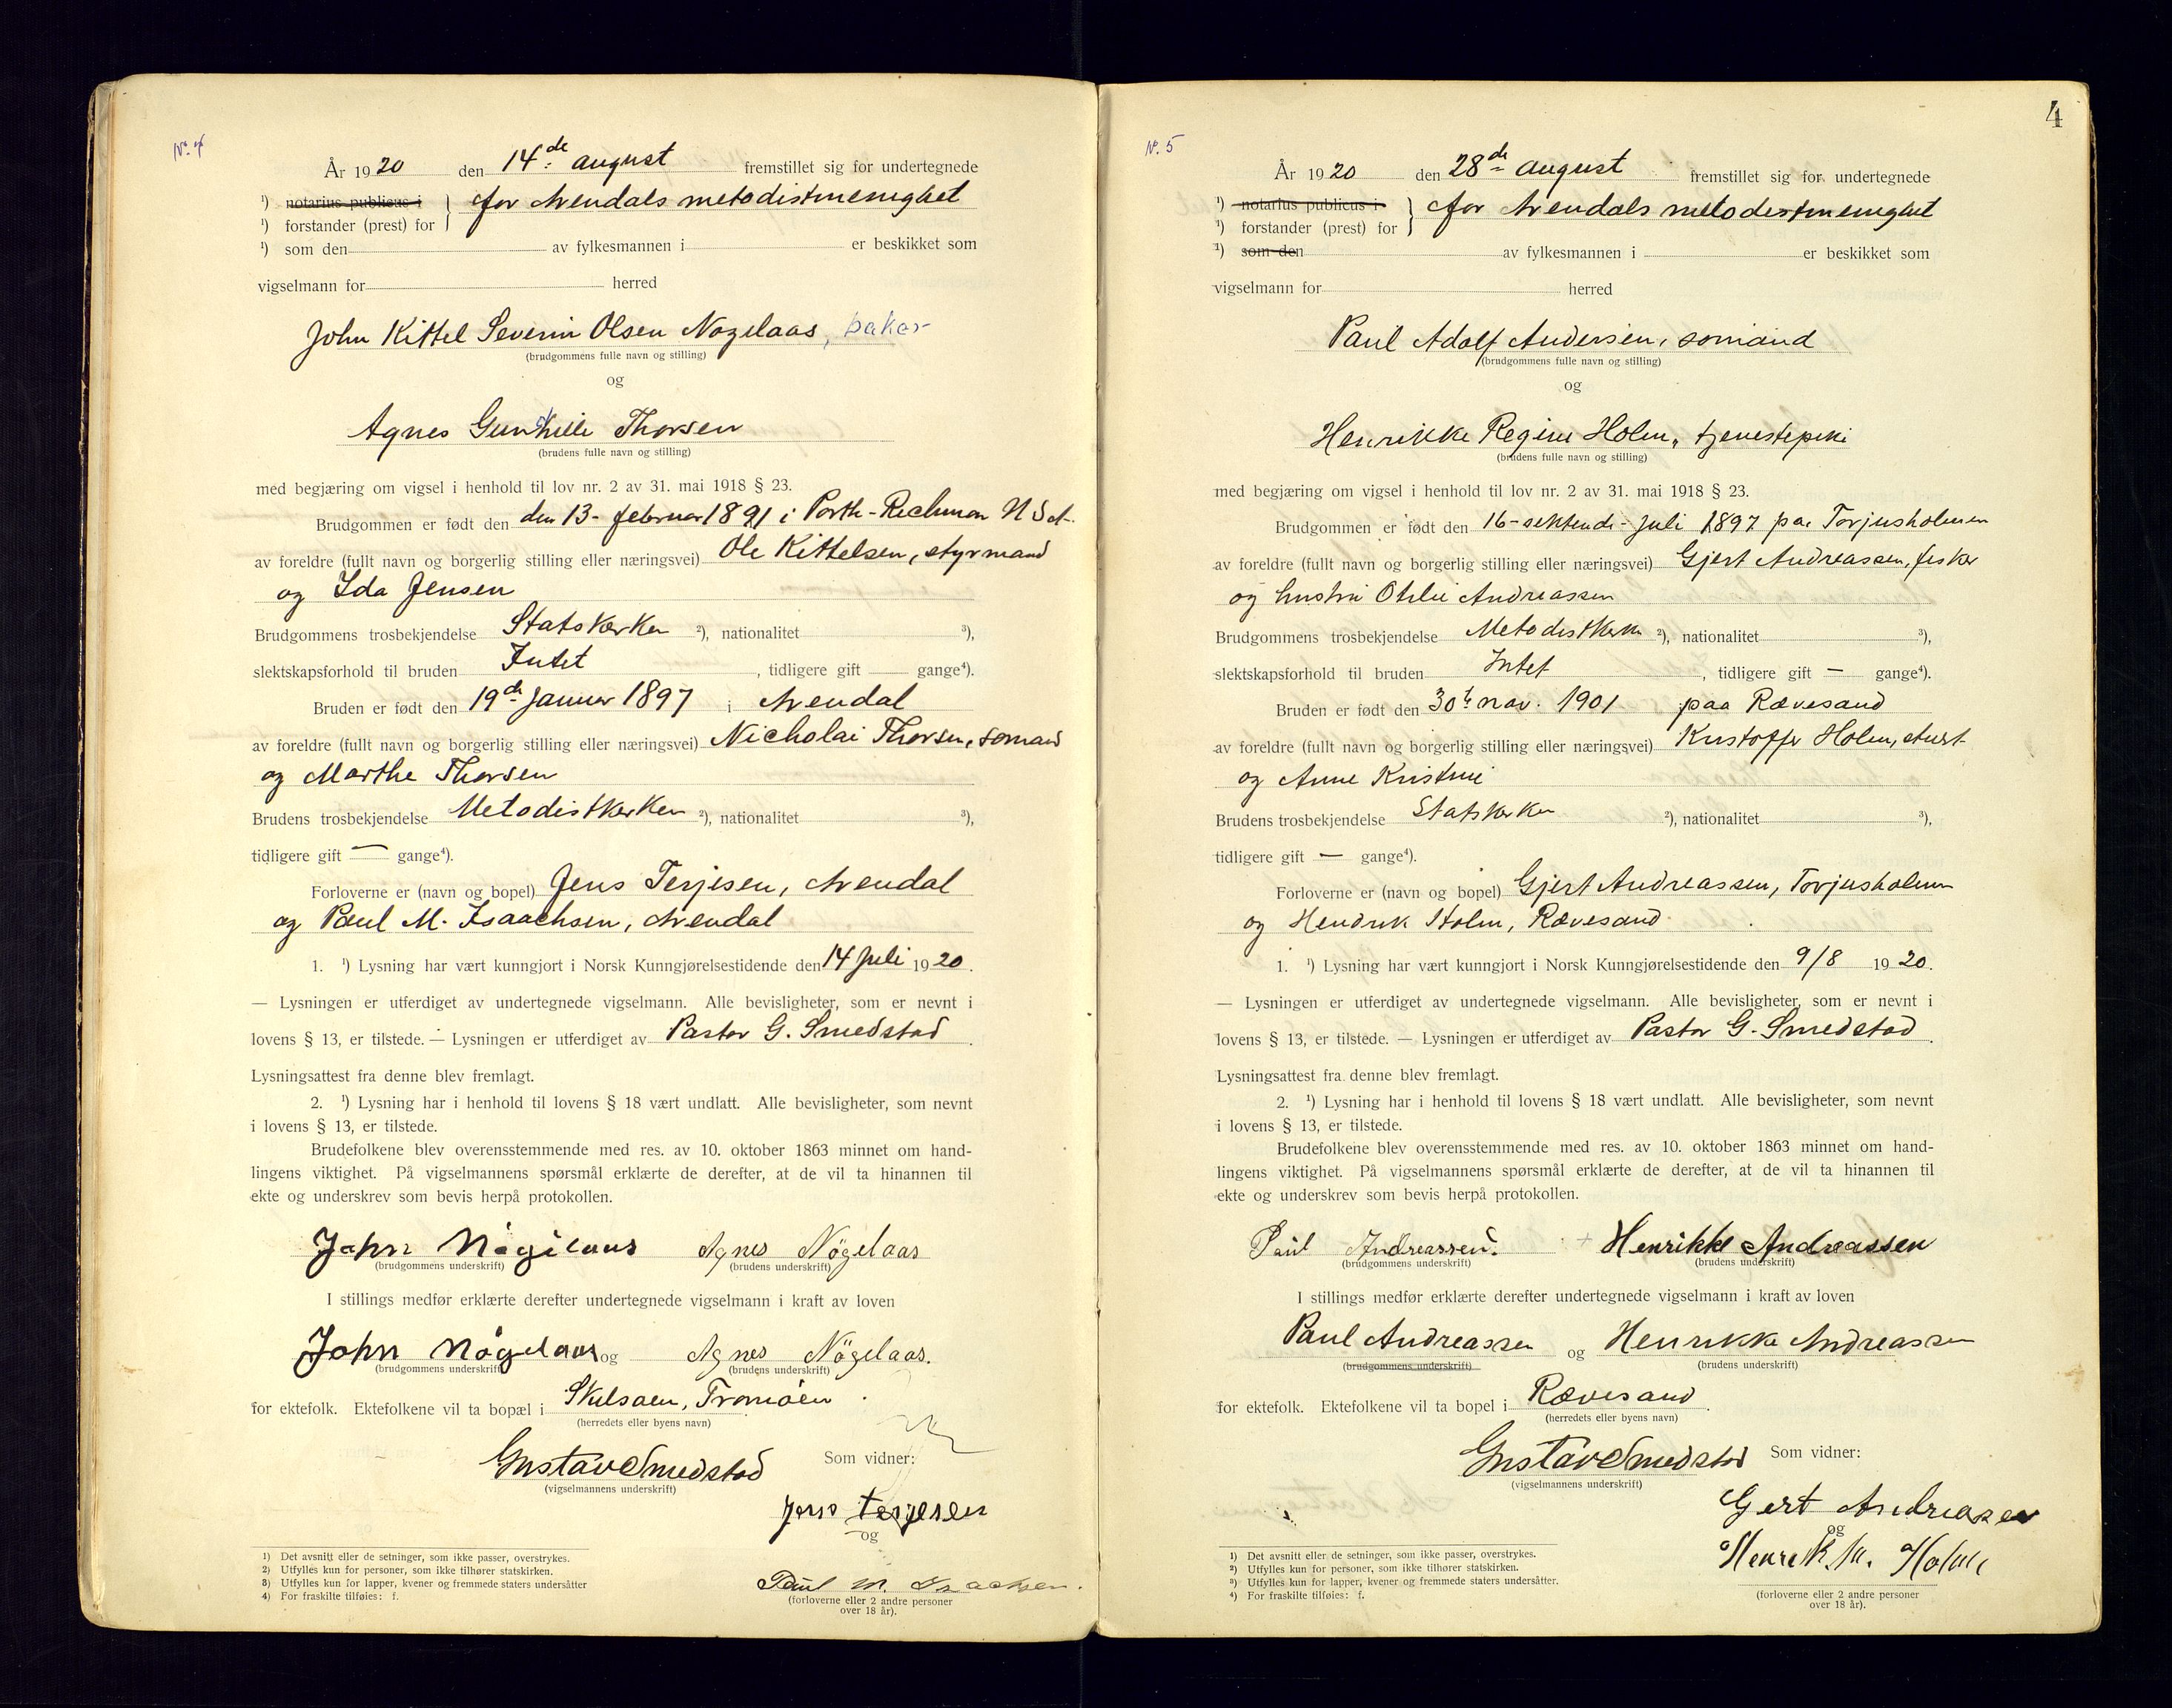 Nº. 4
År 1920 den 14de august fremstillet sig for undertegnede
¹) notarius publicus i } for Arendals metodistmenighet
¹) forstander (prest) for
¹) som den av fylkesmannen i er beskikket som
vigselmann for herred
John Kittel Severin Olsen Nøgelaas, baker
(brudgommens fulle navn og stilling)
og
Agnes Gunhille Thorsen
(brudens fulle navn og stilling)
med begjæring om vigsel i henhold til lov nr. 2 av 31. mai 1918 § 23.
Brudgommen er født den den 13- februar 1891 i Porth-Richmon N
av foreldre (fullt navn og borgerlig stilling eller næringsvei) Ole Kittelsen, styrmand
og Ida Jensen
Brudgommens trosbekjendelse Statskirken ²), nationalitet ³),
slektskapsforhold til bruden Intet, tidligere gift gange⁴).
Bruden er født den 19de januar 1897 i Arendal
av foreldre (fullt navn og borgerlig stilling eller næringsvei) Nicholai Thorsen, sømand
og Marthe Thorsen
Brudens trosbekjendelse Metodistkirken ²), nationalitet ³),
tidligere gift — gange⁴).
Forloverne er (navn og bopel) Jens Terjesen, Arendal
og Paul M. Isaachsen, Arendal
1. ¹) Lysning har vært kunngjort i Norsk Kunngjørelsestidende den 14 juli 1920.
— Lysningen er utferdiget av undertegnede vigselmann. Alle bevisligheter, som er nevnt i
lovens § 13, er tilstede. — Lysningen er utferdiget av Pastor G. Smedstad.
Lysningsattest fra denne blev fremlagt.
2. ¹) Lysning har i henhold til lovens § 18 vært undlatt. Alle bevisligheter, som nevnt
i lovens § 13, er tilstede.
Brudefolkene blev overensstemmende med res. av 10. oktober 1863 minnet om hand-
lingens viktighet. På vigselmannens spørsmål erklærte de derefter, at de vil ta hinannen til
ekte og underskrev som bevis herpå protokollen.
John Nögelaas Agnes Nögelaas
(brudgommens underskrift) (brudens underskrift)
I stillings medfør erklærte derefter undertegnede vigselmann i kraft av loven
John Nögelaas og Agnes Nögelaas.
(brudgommens underskrift) (brudens underskrift)
for ektefolk. Ektefolkene vil ta bopæl i Skilsøen, Tromöen
(herredets eller byens navn)
Gustav Smedstad Som vidner:
(vigselmannens underskrift)
Jens Terjesen
og
Paul M. Isachsen.
(forloverne eller 2 andre personer
over 18 år).
1) Det avsnitt eller de setninger, som ikke passer, overstrykes.
2) Utfylles kun for personer, som ikke tilhører statskirken.
3) Utfylles kun for lapper, kvener og fremmede staters undersåtter
4) For fraskilte tilføies: f.
4
Nº. 5
År 1920 den 28de august fremstillet sig for undertegnede
¹) notarius publicus i } for Arendals metodistmenighet
¹) forstander (prest) for
¹) som den av fylkesmannen i er beskikket som
vigselmann for herred
Paul Adolf Andersen, sømand
(brudgommens fulle navn og stilling)
og
Henrikke Regine Holm, tjenestepike
(brudens fulle navn og stilling)
med begjæring om vigsel i henhold til lov nr. 2 av 31. mai 1918 § 23.
Brudgommen er født den 16-sekstende- juli 1897 paa Torjusholmen
av foreldre (fullt navn og borgerlig stilling eller næringsvei) Gjert Andreassen, fisker
og hustru Otilie Andreassen
Brudgommens trosbekjendelse Metodistkirken ²), nationalitet ³),
slektskapsforhold til bruden Intet, tidligere gift — gange⁴).
Bruden er født den 30te nov. 1901 paa Rævesand
av foreldre (fullt navn og borgerlig stilling eller næringsvei) Kristoffer Holm,
og Anne Kristine
Brudens trosbekjendelse Statskirken ²), nationalitet ³),
tidligere gift — gange⁴).
Forloverne er (navn og bopel) Gjert Andreassen, Torjusholmen
og Hendrik Holm, Rævesand.
1. ¹) Lysning har vært kunngjort i Norsk Kunngjørelsestidende den 9/8 1920.
— Lysningen er utferdiget av undertegnede vigselmann. Alle bevisligheter, som er nevnt i
lovens § 13, er tilstede. — Lysningen er utferdiget av Pastor G. Smedstad.
Lysningsattest fra denne blev fremlagt.
2. ¹) Lysning har i henhold til lovens § 18 vært undlatt. Alle bevisligheter, som nevnt
i lovens § 13, er tilstede.
Brudefolkene blev overensstemmende med res. av 10. oktober 1863 minnet om hand-
lingens viktighet. På vigselmannens spørsmål erklærte de derefter, at de vil ta hinannen til
ekte og underskrev som bevis herpå protokollen.
Paul Andreassen. Henrikke Andreassen
(brudgommens underskrift) (brudens underskrift)
I stillings medfør erklærte derefter undertegnede vigselmann i kraft av loven
Paul Andreassen og Henrikke Andreassen
(brudgommens underskrift) (brudens underskrift)
for ektefolk. Ektefolkene vil ta bopel i Rævesand.
(herredets eller byens navn)
Gustav Smedstad Som vidner:
(vigselmannens underskrift)
Gert Andreasen
og
Henrik M. Holm
(forloverne eller 2 andre personer
over 18 år).
1) Det avsnitt eller de setninger, som ikke passer, overstrykes.
2) Utfylles kun for personer, som ikke tilhører statskirken.
3) Utfylles kun for lapper, kvener og fremmede staters undersåtter.
4) For fraskilte tilføies: f.